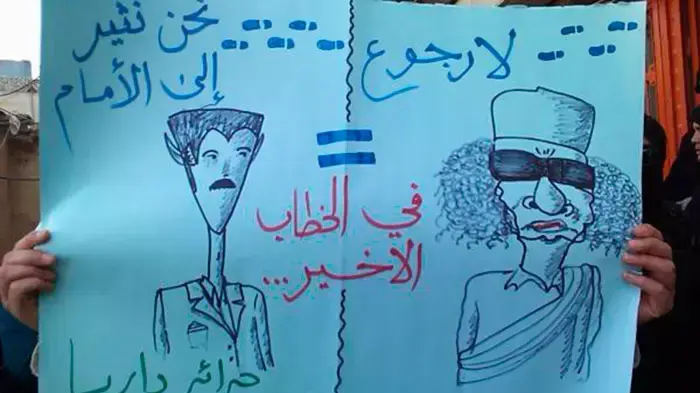 لا رجوع
نحن نثير
إلى الأمام
=
في الخطاب
الاخير...
حرائر داريا